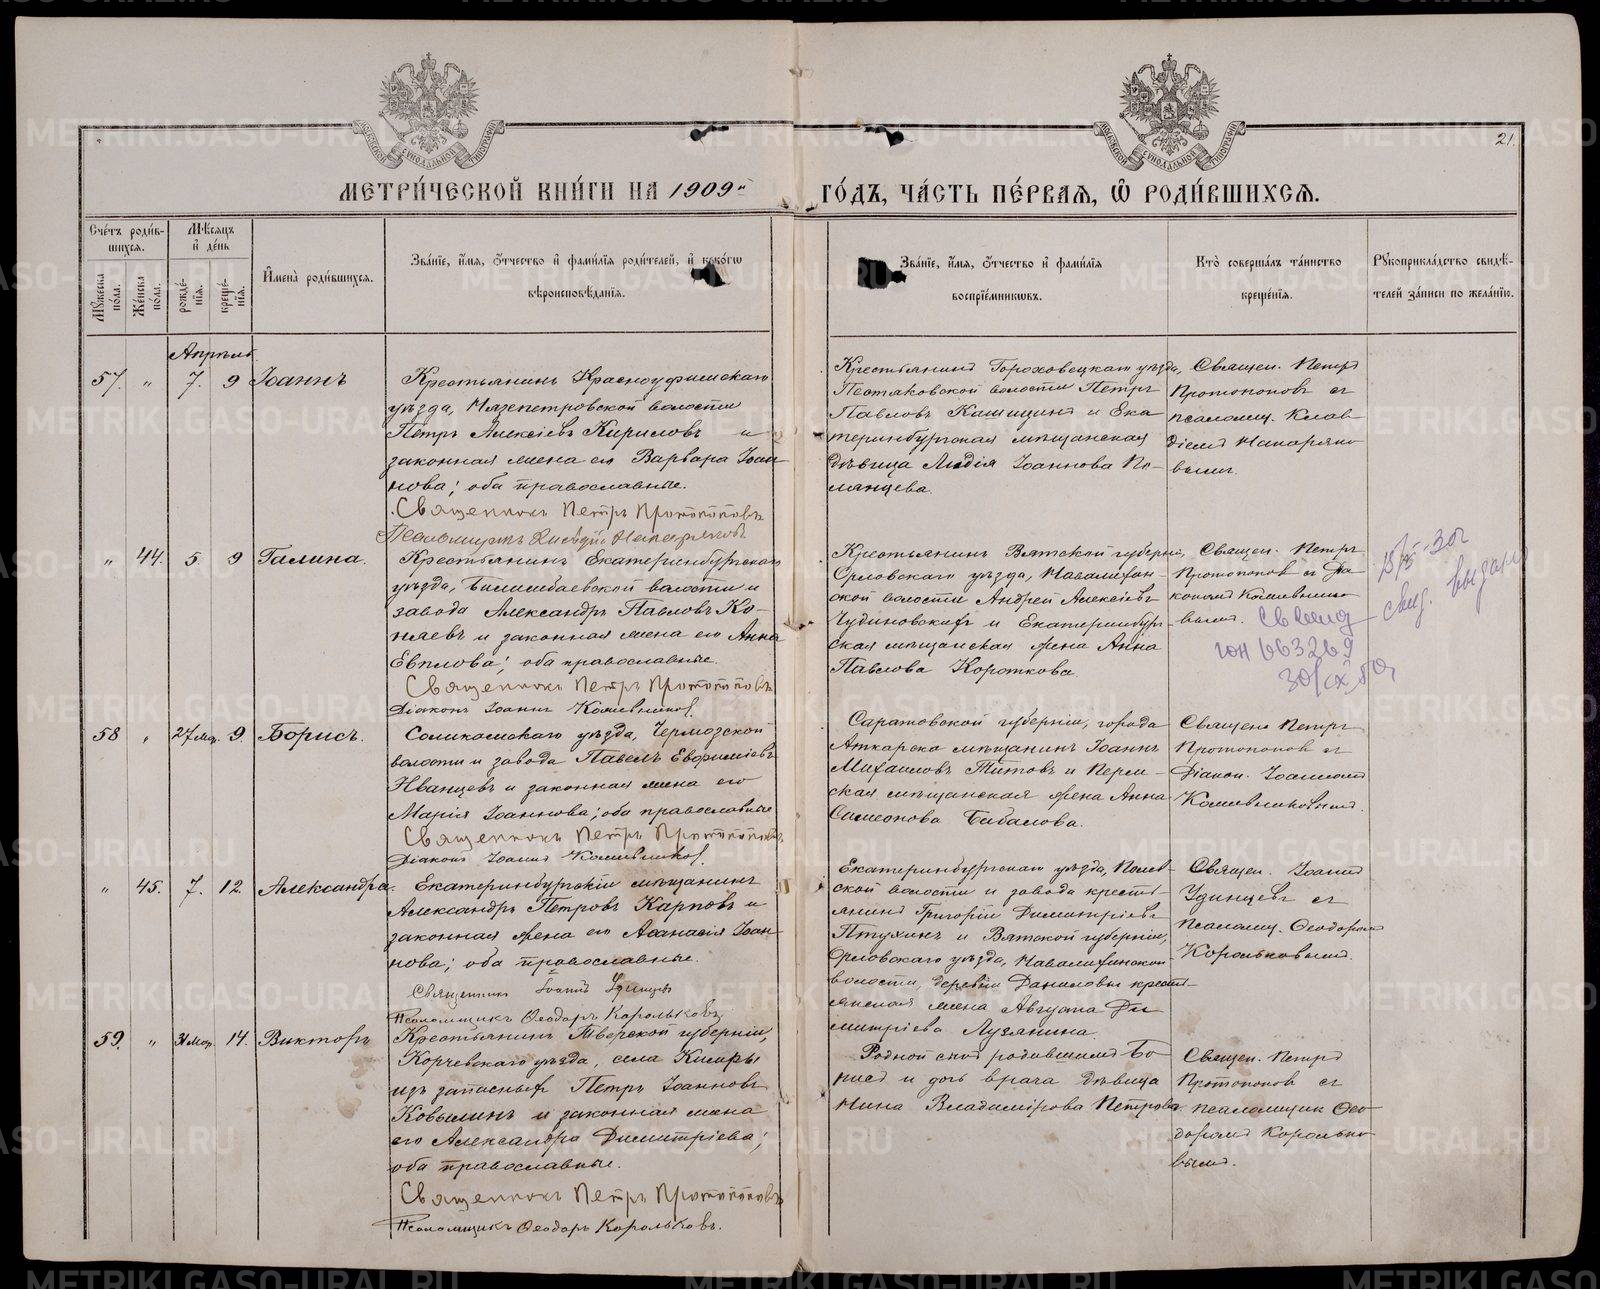 METRIKI.GASO-URAL.RU
21.
МЕТРИ́ЧЕСКОЙ КНИ́ГИ НА 1909 й
ГО́ДЪ, ЧА́СТЬ ПЕ́РВАЯ, Ѡ РОДИ́ВШИХСЯ.
Сче́тъ роди́в-
шихся.
Мѣ́сяцъ
и́ де́нь
Мꙋ́жеска
по́ла.
Же́нска
по́ла.
рожде́-
нїя.
креще́-
нїя.
И҆мена̀ роди́вшихся.
Зва́нїе, и҆́мя, ѻ҆́тчество и҆ фами́лїя роди́телей, и҆ како́гѡ
вѣроисповѣ́данїя.
Зва́нїе, и҆́мя, ѻ҆́тчество и҆ фами́лїя
воспрїе́мникѡвъ.
Кто̀ соверша́лъ та́инство
креще́нїя.
Рꙋкоприкла́дство свидѣ́-
телей за́писи по жела́нїю.
Апрѣль.
57. " 7. 9 Іоаннъ
Крестьянинъ Красноуфимскаго
уѣзда, Нязепетровской волости
Петръ Алексіевъ Кириловъ и
законная жена его Варвара Іоан-
нова; оба православные.
Священникъ Петръ Протопоповъ
Крестьянинъ Гороховецкаго уѣзда,
волости Петръ
Павловъ и Ека-
теринбургская мѣщанская
дѣвица Лидія Іоаннова По-
лянцева.
Священ. Петръ
Протопоповъ съ
псаломщ. Клав-
діемъ Макаряко-
вымъ.
" 44. 5. 9 Галина.
Крестьянинъ Екатеринбургскаго
уѣзда, Билимбаевской волости и
завода Александръ Павловъ Ко-
няевъ и законная жена его Анна
Евплова; оба православные.
Священникъ Петръ Протопоповъ
Діаконъ Іоаннъ Кожевниковъ.
Крестьянинъ Вятской губерніи,
Орловскаго уѣзда,
волости Андрей Алексіевъ
Чудиновскихъ и Екатеринбург-
ская мѣщанская жена Анна
Павлова Короткова.
Священ. Петръ
Протопоповъ съ Діа-
кономъ Кожевнико-
вымъ.
663269
58 " 27 Мар. 9. Борисъ.
Соликамскаго уѣзда, Чермозской
волости и завода Павелъ Евфиміевъ
Иванцевъ и законная жена его
Марія Іоаннова; оба православные
Священникъ Петръ Протопоповъ
Діаконъ Іоаннъ Кожевниковъ.
Саратовской губерніи, города
Аткарска мѣщанинъ Іоаннъ
Михаиловъ Титовъ и Перм-
ская мѣщанская жена Анна
Симеонова Бабалова.
Священъ Петръ
Протопоповъ съ
Діакон. Іоанномъ
Кожевниковымъ.
" 45. 7. 12. Александра.
Екатеринбургскій мѣщанинъ
Александръ Петровъ Карповъ и
законная жена его Аѳанасія Іоан-
нова; оба православные.
Священникъ Іоаннъ Удинцевъ
Псаломщикъ Ѳеодоръ Корольковъ
Екатеринбургскаго уѣзда, Полев-
ской волости и завода кресть-
янинъ Григорій Димитріевъ
Птухинъ и Вятской губерніи,
Орловскаго уѣзда,
волости, деревни Даниловы кресть-
янская жена Августа Ди-
митріева Лузянина.
Священ. Іоаннъ
Удинцевъ съ
Псаломщ. Ѳеодоромъ
Корольковымъ.
59. " 31 Мар. 14. Викторъ
Крестьянинъ Тверской губерніи,
Корчевскаго уѣзда, села Кимры
изъ запасныхъ Петръ Іоанновъ
Ковылинъ и законная жена
его Александра Димитріева;
оба православные.
Священникъ Петръ Протопоповъ
Псаломщикъ Ѳеодоръ Корольковъ.
Родной родившимся Бо-
рисъ и дочь врача дѣвица
Нина Владимірова Петрова.
Священ. Петръ
Протопоповъ съ
псаломщик Ѳео-
доромъ Королько-
вымъ.